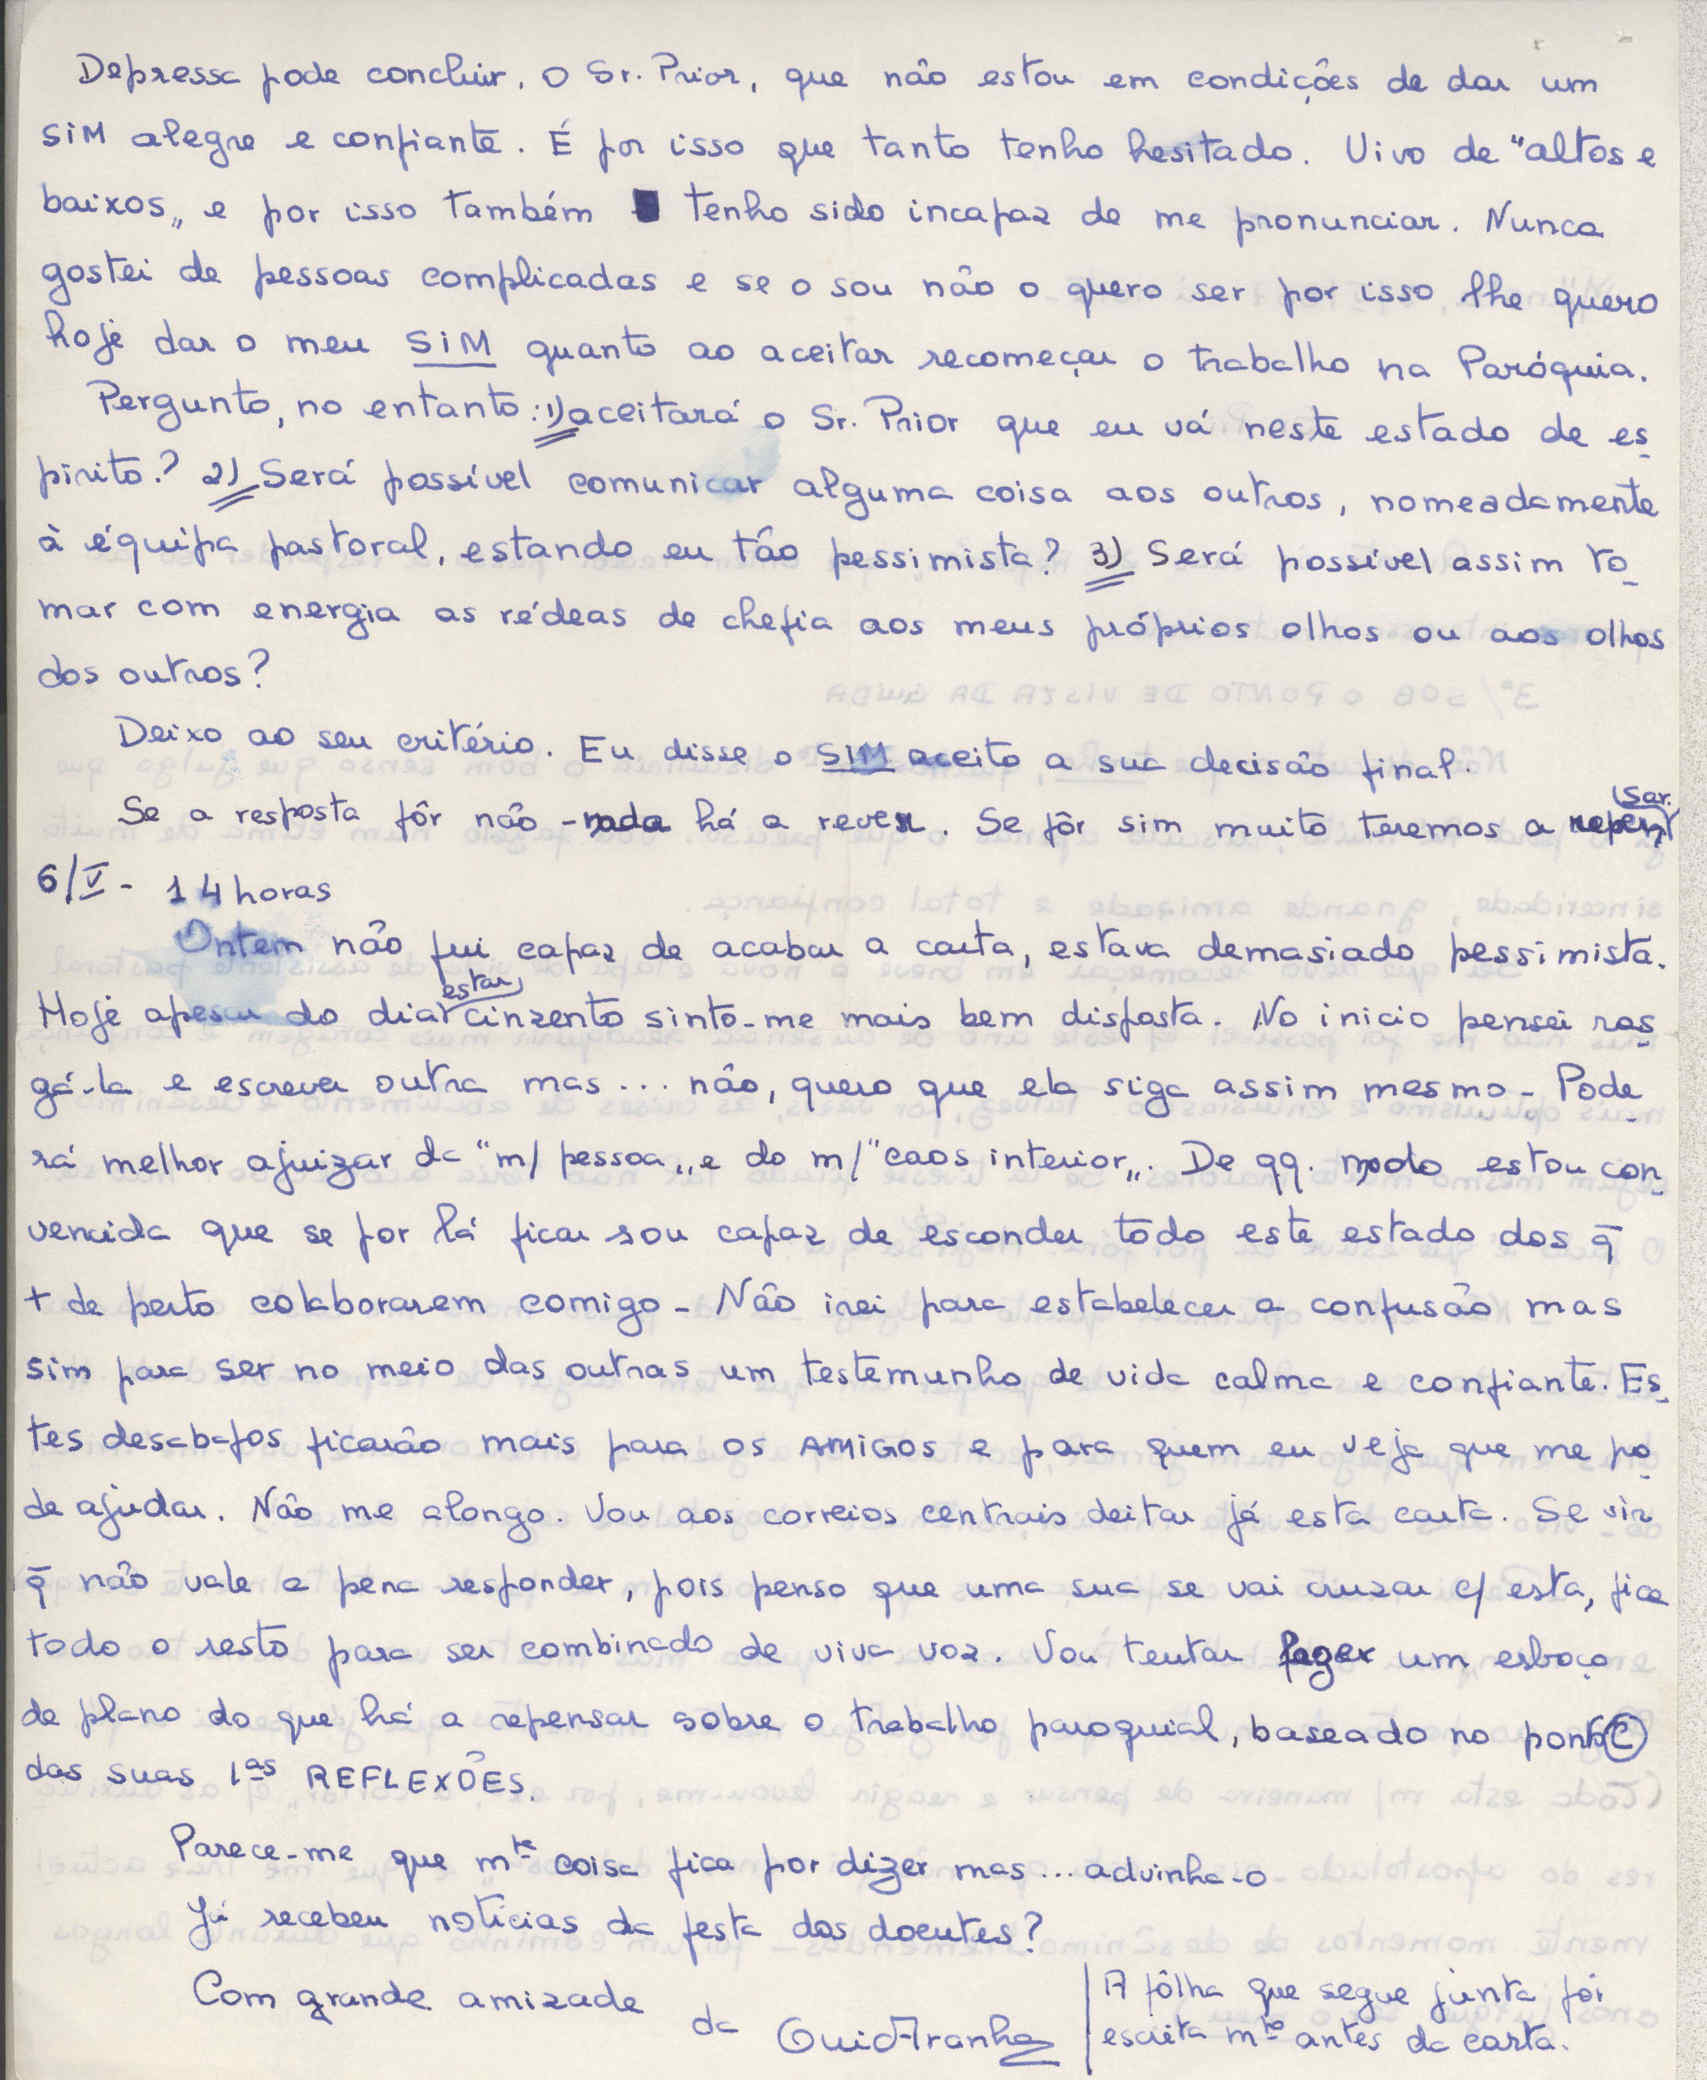 Depressa pode concluir, o Sr. Prior, que não estou em condições de dar um
SiM alegre e confiante. É por isso que tanto tenho hesitado. Vivo de "altos e
baixos„ e por isso também tenho sido incapaz de me pronunciar. Nunca
gostei de pessoas complicadas e se o sou não o quero ser por isso lhe quero
hoje dar o meu SiM quanto ao aceitar recomeçar o trabalho na Paróquia.
Pergunto, no entanto: 1) aceitará o Sr. Prior que eu vá neste estado de es_
pirito? 2) Será possível comunicar alguma coisa aos outros, nomeadamente
à équipa pastoral, estando eu tão pessimista? 3) Será possível assim to_
mar com energia as rédeas de chefia aos meus próprios olhos ou aos olhos
dos outros?
Deixo ao seu critério. Eu disse o SIM aceito a sua decisão final.
Se a resposta fôr não - nada há a rever. Se fôr sim muito teremos a repensar.
6/V - 14 horas
Ontem não fui capaz de acabar a carta, estava demasiado pessimista.
Hoje apesar do dia estar cinzento sinto-me mais bem disposta. No inicio pensei ras_
gá-la e escrever outra mas... não, quero que ela siga assim mesmo - Pode_
rá melhor ajuizar da "m/ pessoa„ e do m/ "caos interior„. De qq. modo estou con_
vencida que se por lá ficar sou capaz de esconder todo este estado dos q̄
+ de perto colaborarem comigo - Não irei para estabelecer a confusão mas
sim para ser no meio das outras um testemunho de vida calma e confiante. Es_
tes desabafos ficarão mais para os AMIGOS e para quem eu veja que me po_
de ajudar. Não me alongo. Vou aos correios centrais deitar já esta carta. Se vir
q̄ não vale a pena responder, pois penso que uma sua se vai cruzar c/ esta, fica
todo o resto para ser combinado de viva voz. Vou tentar fazer um esboço
de plano do que há a repensar sobre o trabalho paroquial, baseado no ponto C
das suas 1as REFLEXÕES.
Parece-me que mta coisa fica por dizer mas... advinha-o
Já recebeu notícias da festa dos doentes?
Com grande amizade
da GuidAranha
A fôlha que segue junta foi
escrita mto antes da carta.